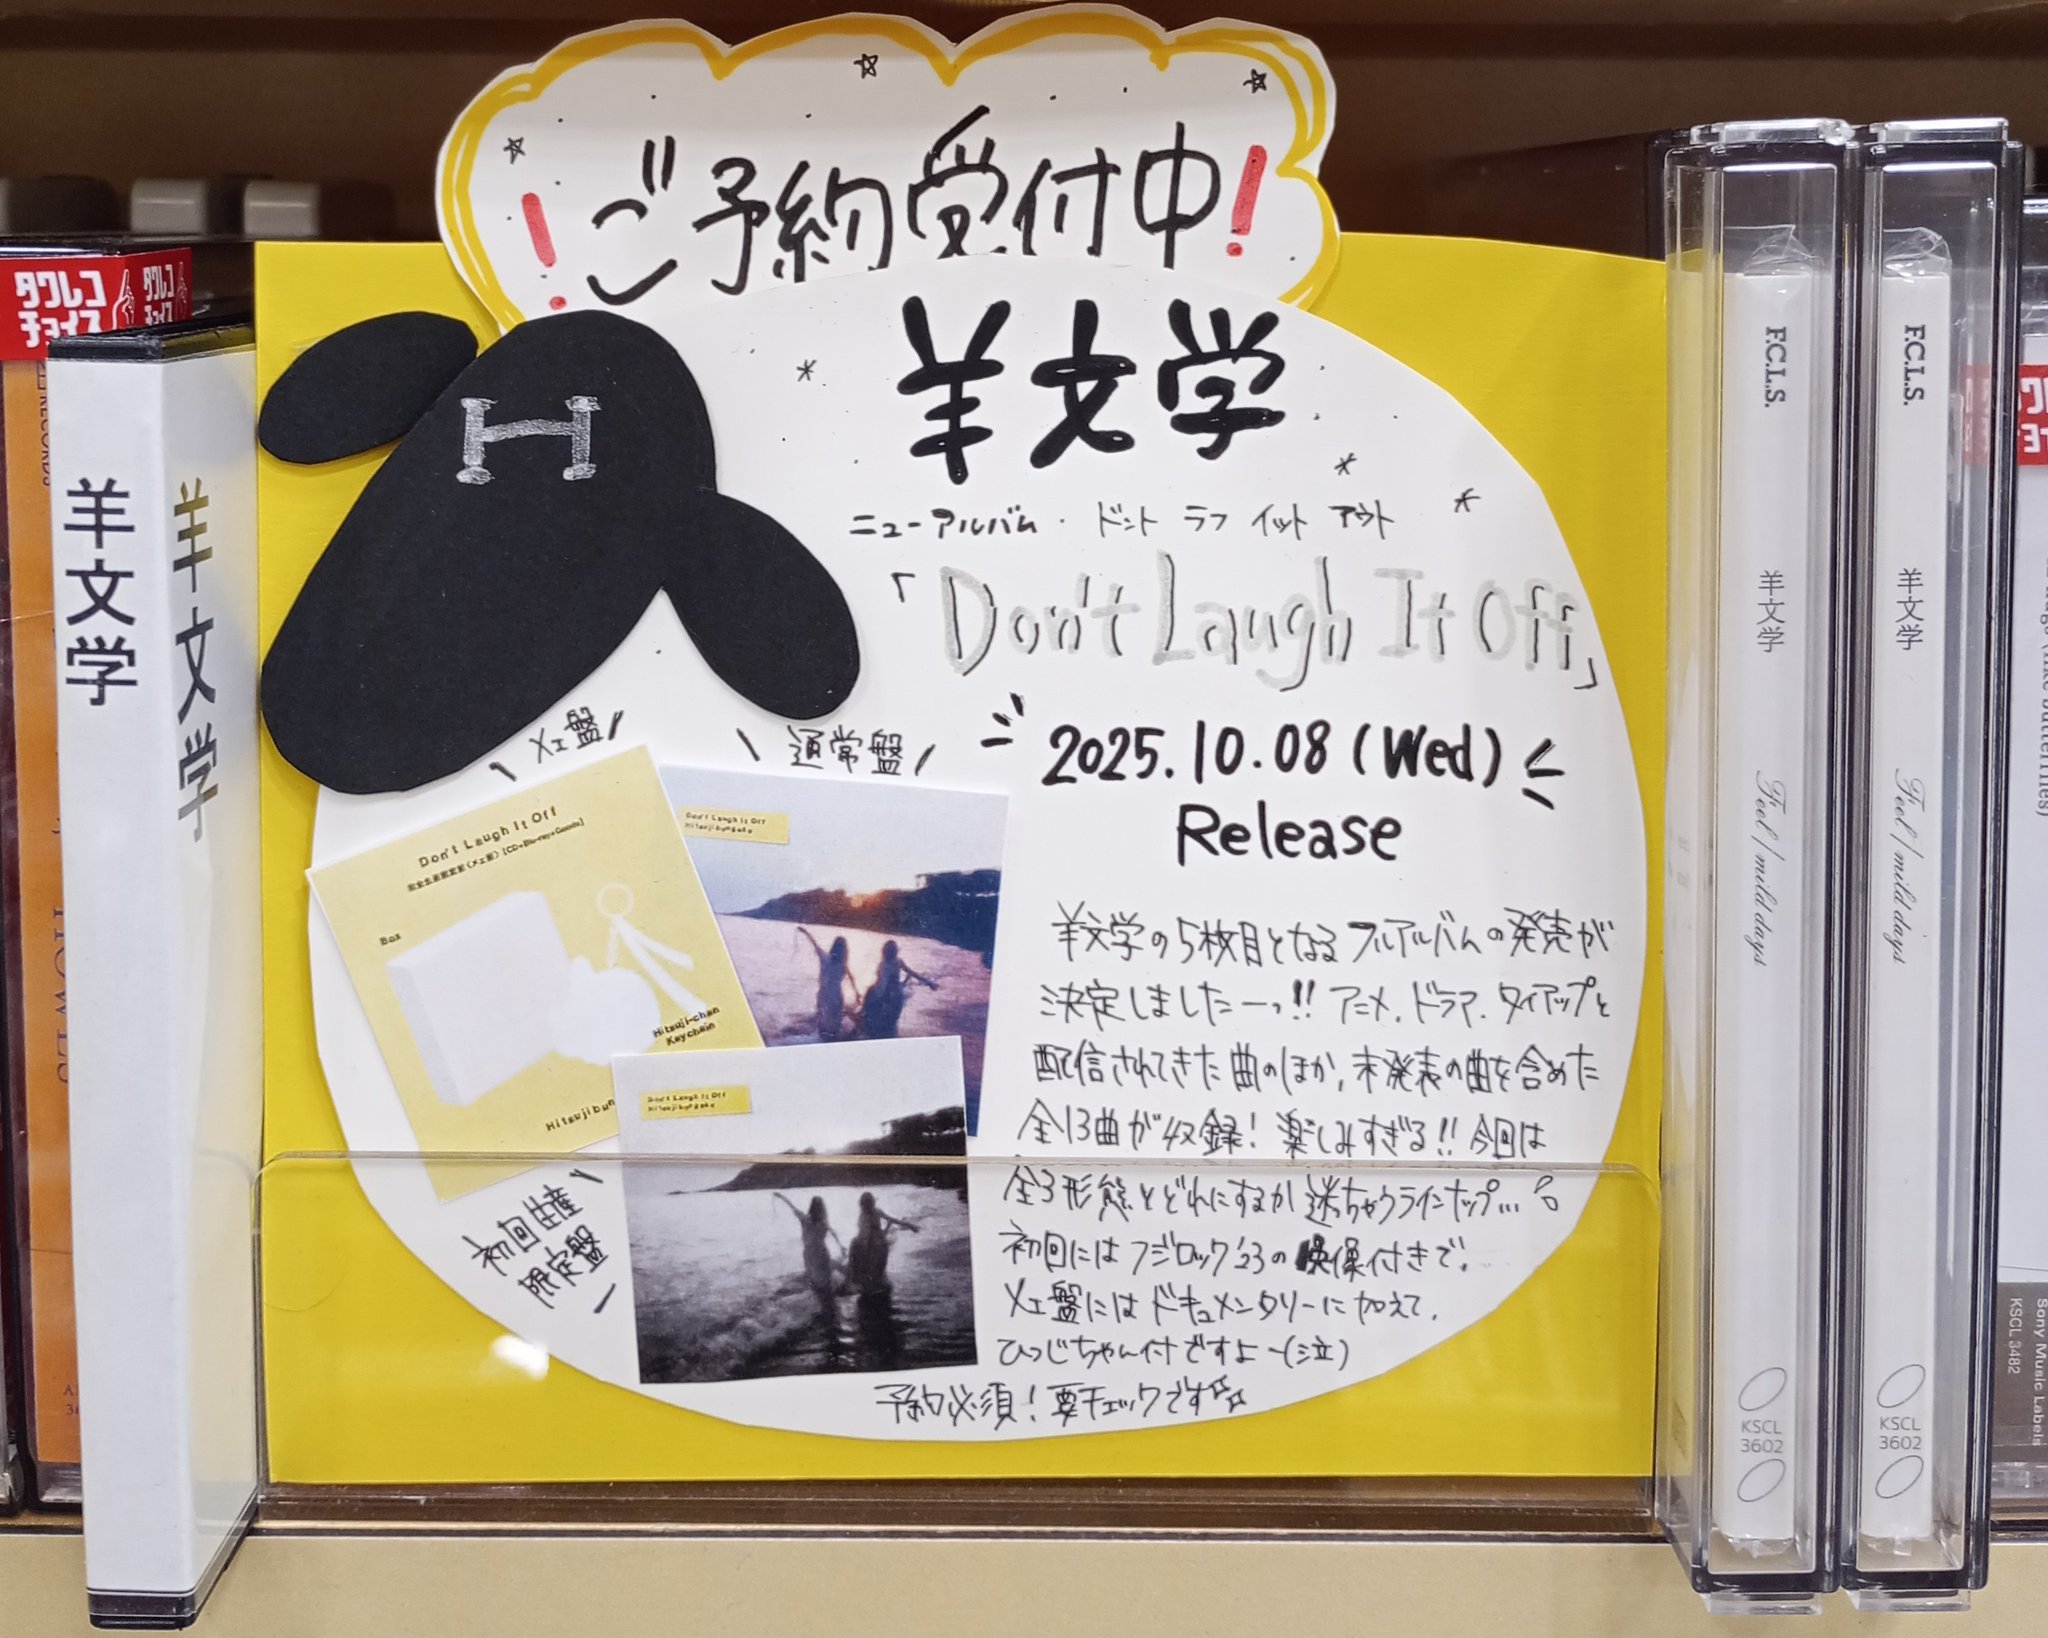 ！ご予約受付中！
羊文学
ニューアルバム・ドント ラフ イット アウト
「Don't Laugh It Off」
2025.10.08(Wed)
Release
メェ盤
通常盤
初回生産
限定盤
羊文学の5枚目となるフルアルバムの発売が
決定しましたーっ!! アニメ、ドラマ、タイアップと
配信されてきた曲のほか、未発表の曲を含めた
全13曲が収録！楽しみすぎる!! 今回は
全3形態とどれにするか迷っちゃうラインナップ…
初回にはフジロック'23の映像付きで、
メェ盤にはドキュメンタリーに加えて、
ひつじちゃん付ですよ〜(泣)
予約必須！要チェックです☆
Don't Laugh It Off
完全生産限定盤(メェ盤) [CD+Blu-ray+Goods]
Box
Hitsuji-chan
Keychain
Hitsujibun
Don't Laugh It Off
Hitsujibungaku
Don't Laugh It Off
Hitsujibungaku
タワレコ
チョイス
タワレコ
チョイス
RECORDS
羊文学
羊文学
F.C.L.S.
羊文学
Feel / mild days
KSCL
3602
F.C.L.S.
羊文学
Feel / mild days
KSCL
3602
(like butterflies)
Sony Music Labels
KSCL 3482